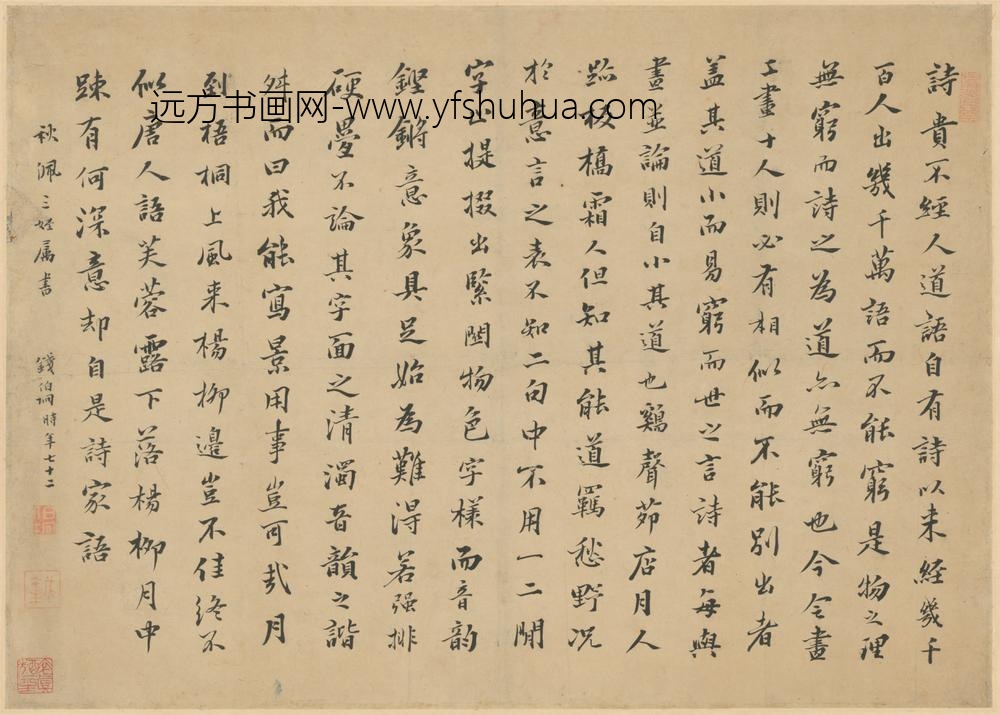 詩貴不經人道語自有詩以来經幾千
百人出幾千萬語而不能窮是物之理
無窮而詩之為道亦無窮也今令畫
工畫十人則必有相似而不能別出者
盖其道小而易窮而世之言詩者每與
畫並論則自小其道也鷄聲茆店月人
跡板橋霜人但知其能道羈愁野况
於意言之表不知二句中不用一二閒
字止提掇出緊關物色字樣而音韵
鏗鏘意象具足始為難淂若强排
硬疊不論其字面之清濁音韻之諧
舛而曰我能寫景用事豈可哉月
到梧桐上風来楊柳邊豈不佳終不
似唐人語芙蓉露下落楊柳月中
踈有何深意却自是詩家語
秋佩三姪属書
錢伯坰時年七十二
远方书画网-www.yfshuhua.com